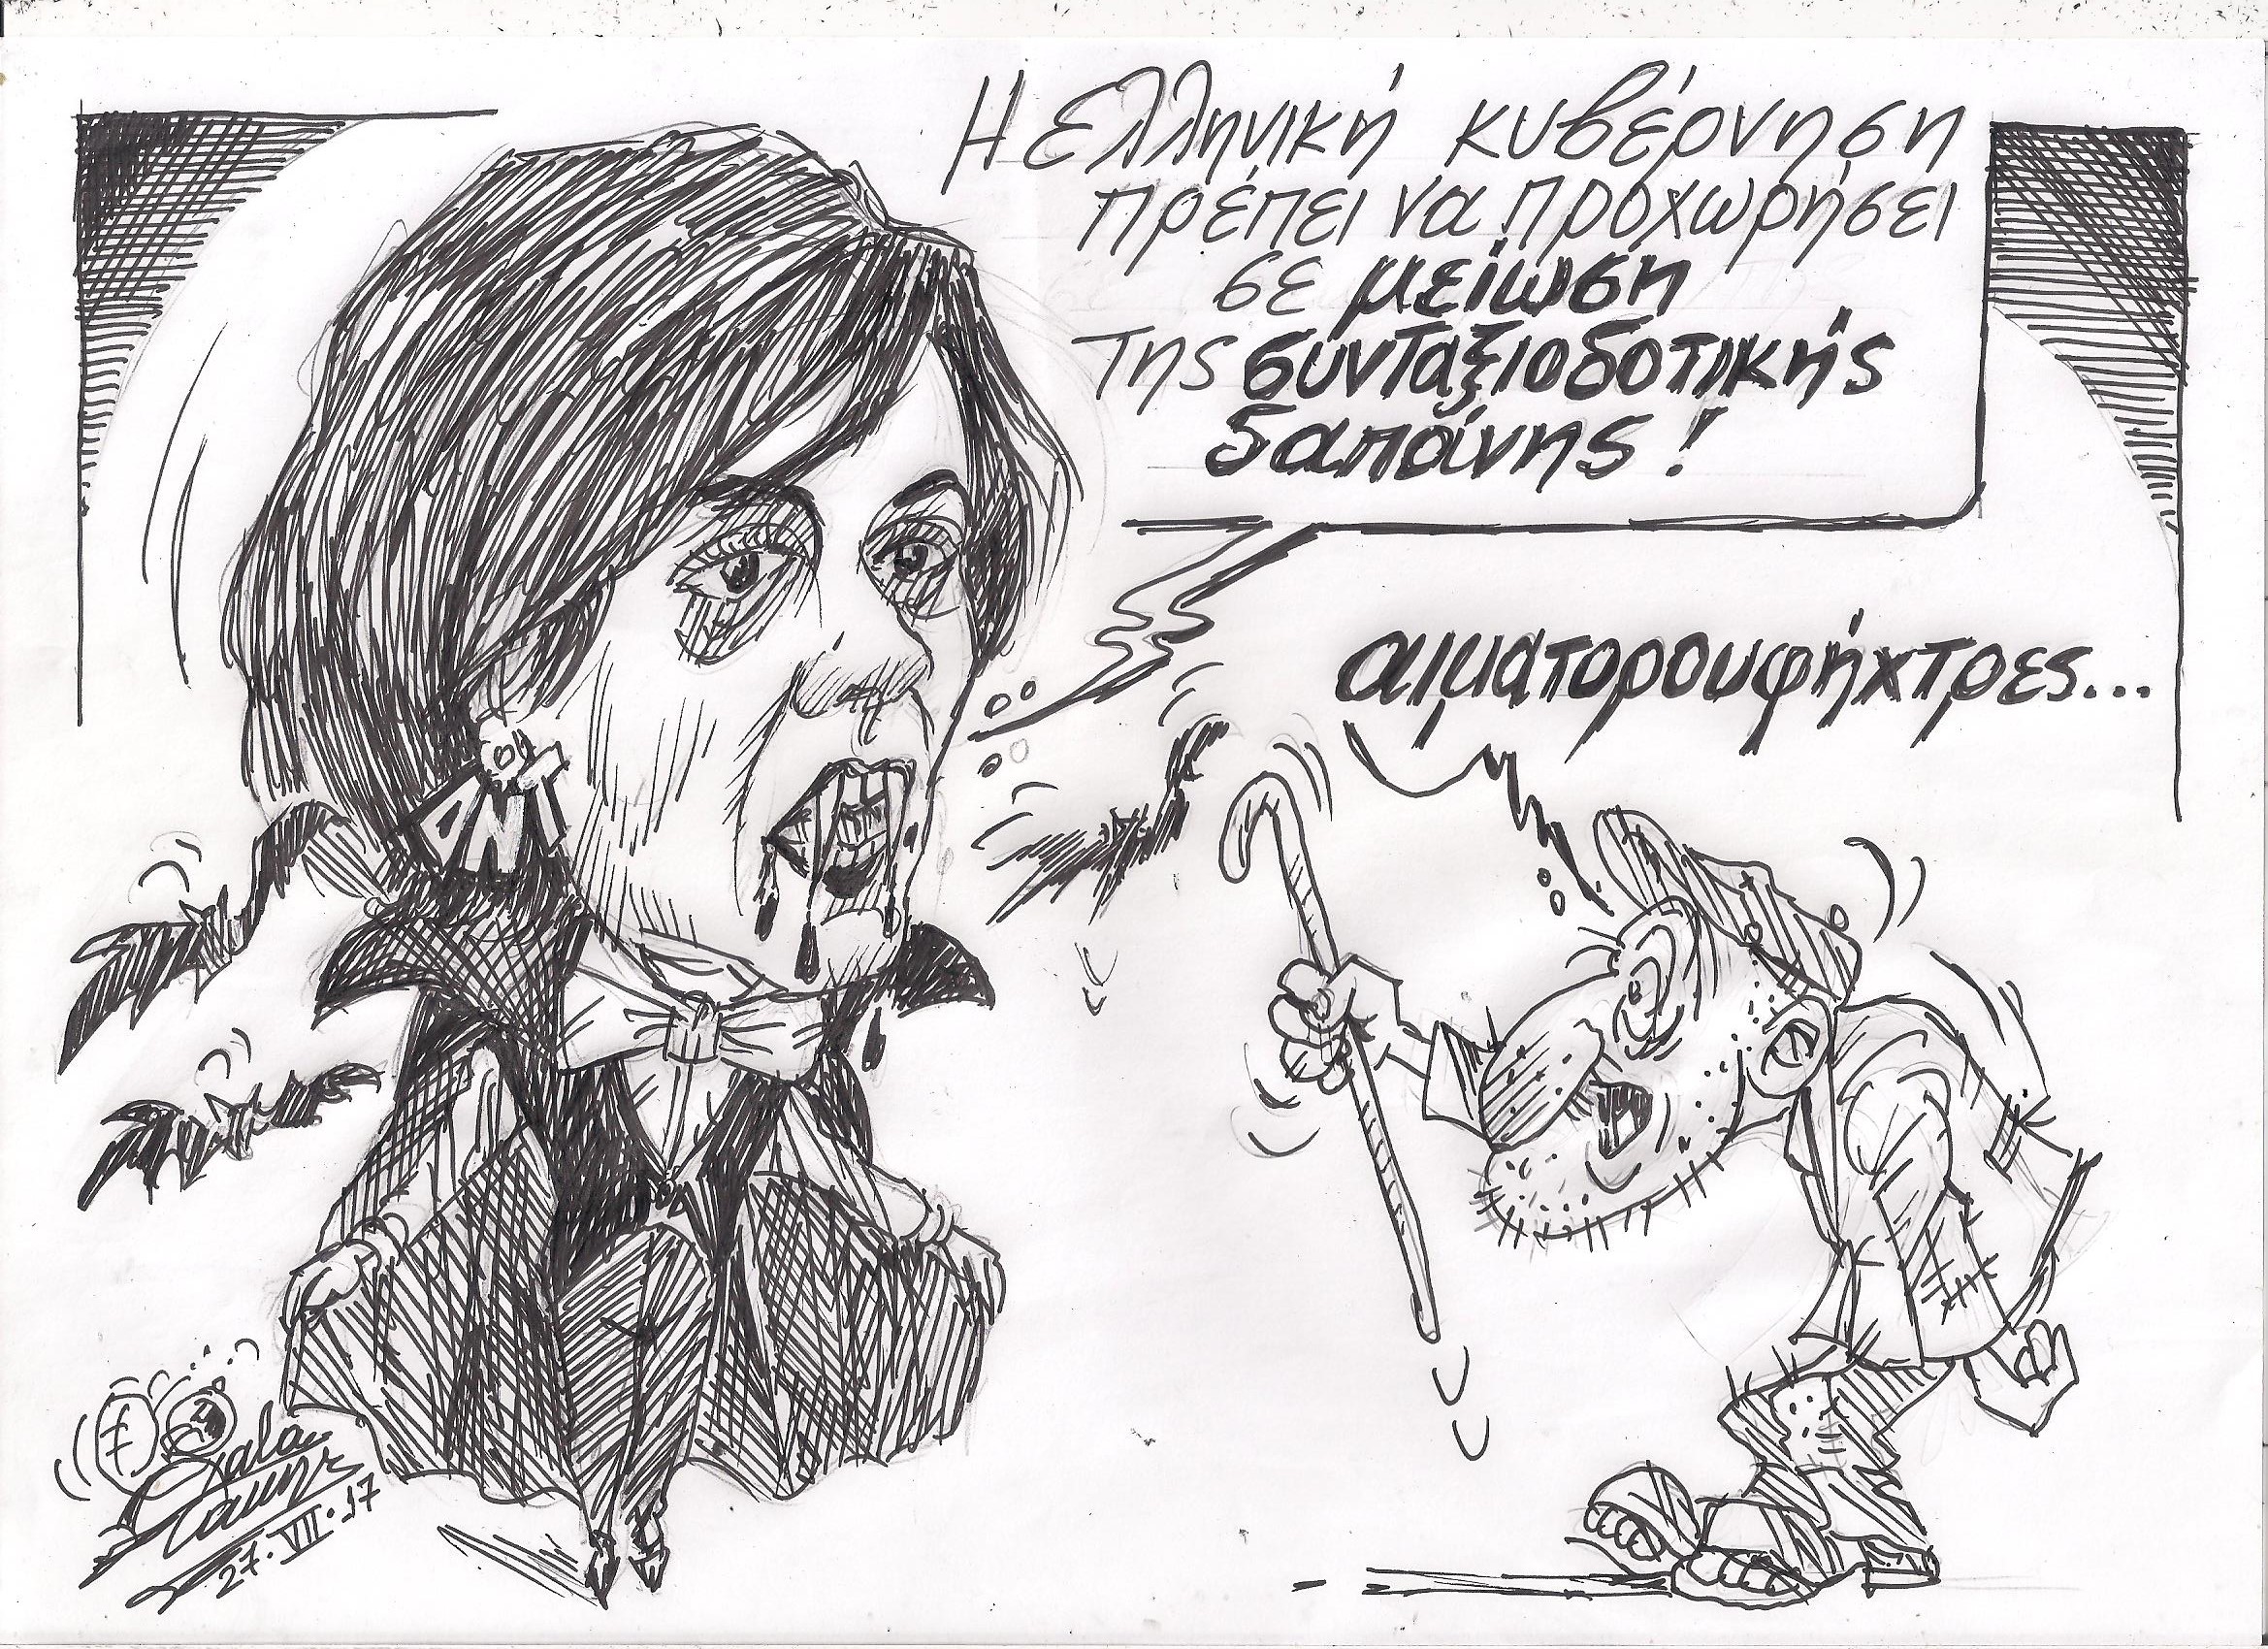 Η Ελληνική κυβέρνηση
πρέπει να προχωρήσει
σε μείωση
της συνταξιοδοτικής
δαπάνης!
αιματορουφήχτρες...
f
27.VII.17